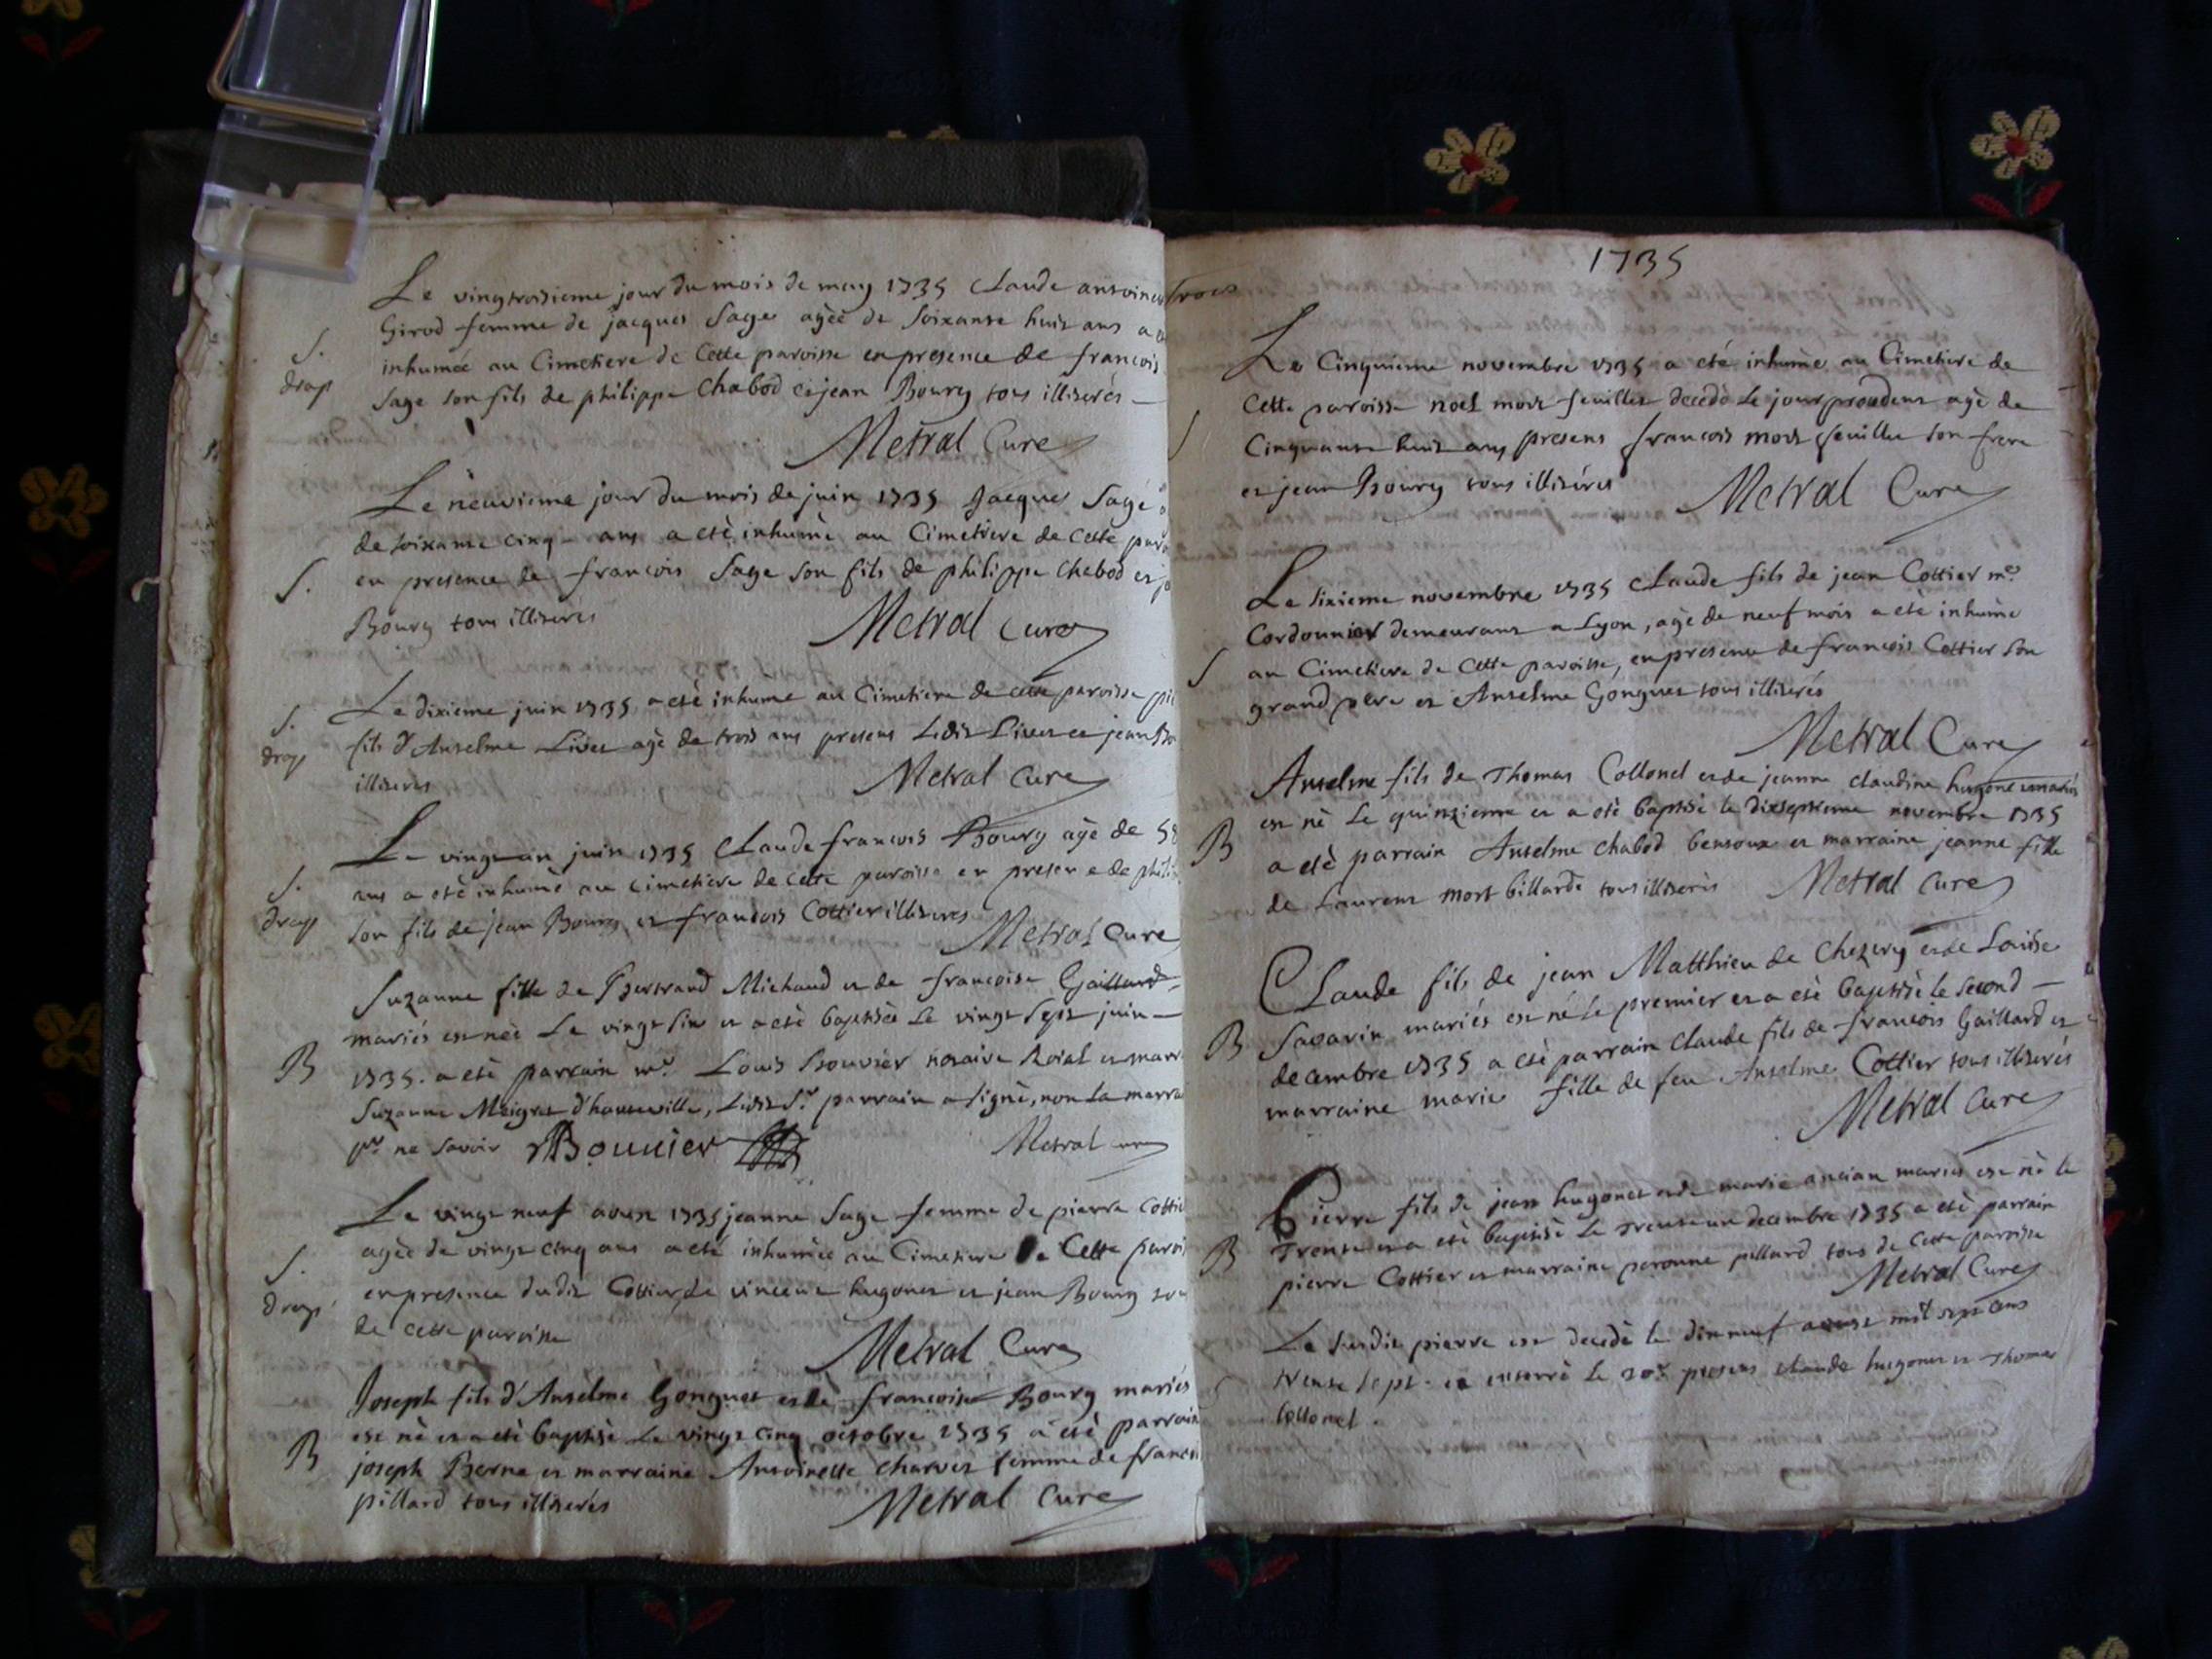 Le vingtroisieme jour du mois de may 1735 Claude antoine
Girod femme de jacques Sage agèe de soixante huit ans a
S.
inhumée au Cimetiere de Cette paroisse en presence de francois
drap
Sage son fils de philippe Chabod et jean Bourg tous illiterés
Metral Curé
Le neuvieme jour du mois de juin 1735 Jacques Sage
de soixante cinq ans a etè inhumè au Cimetiere de Cette
S.
en presence de francois Sage son fils de philippe Chabod et
Bourg tous illiterés
Metral Curé
Le dixieme juin 1735 a etè inhumé au Cimetiere de cette paroisse
S.
drap
fils d'Anselme Livet agè de trois ans presens Ledit Livet et jean
illiterés
Metral Curé
Le vingt un juin 1735 Claude francois Bourg agè de 58
S.
ans a etè inhumè au cimetiere de cette paroisse en presence de
drap
son fils de jean Bourg et francois Cottier illiterés
Metral Curé
Suzanne fille de Bertrand Michaud et de francoise Gaillard
mariés est née Le vingt six et a etè baptisée Le vingt sept juin
B
1735. a etè parrain mr. Louis Bouvier notaire Roial et
Suzanne Meigret d'hauteville, Ledit Sr. parrain a signè, non la
pr. ne Savoir Bouvier
Metral curé
Le vingt neuf aoust 1735 jeanne Sage femme de pierre
agèe de vingt cinq ans a eté inhumèe au Cimetiere de Cette
S.
drap
en presence dudit Cottier, de vincent hugonet et jean Bourg
de cette paroisse
Metral Curé
Joseph fils d'Anselme Gonguet et de francoise Bourg mariés
est nè et a etè baptisè Le vingt cinq octobre 1735 a etè parrain
B
joseph Berne et marraine Antoinette charvet femme de
pillard tous illiterés
Metral Curé
1735
Le Cinquieme novembre 1735 a eté inhumè au Cimetiere de
Cette paroisse noel mort feuillet decedè Le jour precedent agè de
S
Cinquante huit ans presens francois mort feuillet son frere
et jean Bourg tous illiterés
Metral Curé
Le sixieme novembre 1735 Claude fils de jean Cottier me.
Cordonnier demeurant a Lyon, agè de neuf mois a etè inhumè
S
au Cimetiere de Cette paroisse, en presence de francois Cottier son
grand pere et Anselme Gonguet tous illiterés
Metral Curé
Anselme fils de Thomas Collonel et de jeanne claudine hugonet mariés
est nè Le quinzieme et a etè baptisè le dixseptieme novembre 1735
B
a etè parrain Anselme chabod et marraine jeanne fille
de Laurent mort billarde tous illiterés Metral Curé
Claude fils de jean Matthieu de Chezery et de Louise
Savarin mariés est né le premier et a etè baptisè le second
B
decembre 1735 a etè parrain claude fils de francois Gaillard et
marraine marie fille de feu Anselme Cottier tous illiterés
Metral Curé
Pierre fils de jean hugonet et de marie ancian mariés est nè le
B
Trente et a etè baptisè Le trente un decembre 1735 a etè parrain
pierre Cottier et marraine peronne pillard tous de Cette paroisse
Metral Curé
Le susdit pierre est decedè le dix neuf aoust mil sept cens
trente sept et enterrè Le 20e. presens claude hugonet et Thomas
Collonel.